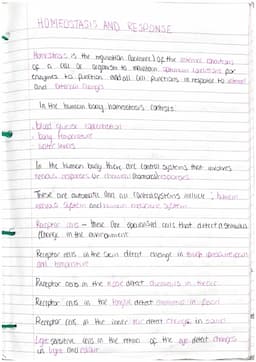 HOMEOSTASIS AND RESPONSE
Homeostasis is the regulation (control) of the internal conditions
of a cell or organism to maintain optimum conditions for
enzymes to function and all cell functions in response to internal
and external changes
In the human body homeostasis controls:
· blood glucose concentration
· body temperature
· water levels
In the human body there are control systems that involves
nervous responses or chemical responses.
These are automatic and all control systems include : human
nervous system and human endocrine system.
Receptor cells - these are specialised cells that detect a stimulus
(change in the environment
Receptor cells in the skin detect change in touch pressure pain
and temperature
Receptor cells in the nose detect chemicals in the air
Receptor cells in the tongue detect chemicals in food
Receptor cells in the inner ear detect changes in sound
light sensitive cells in the retina of the eye detect changes
in light and colour